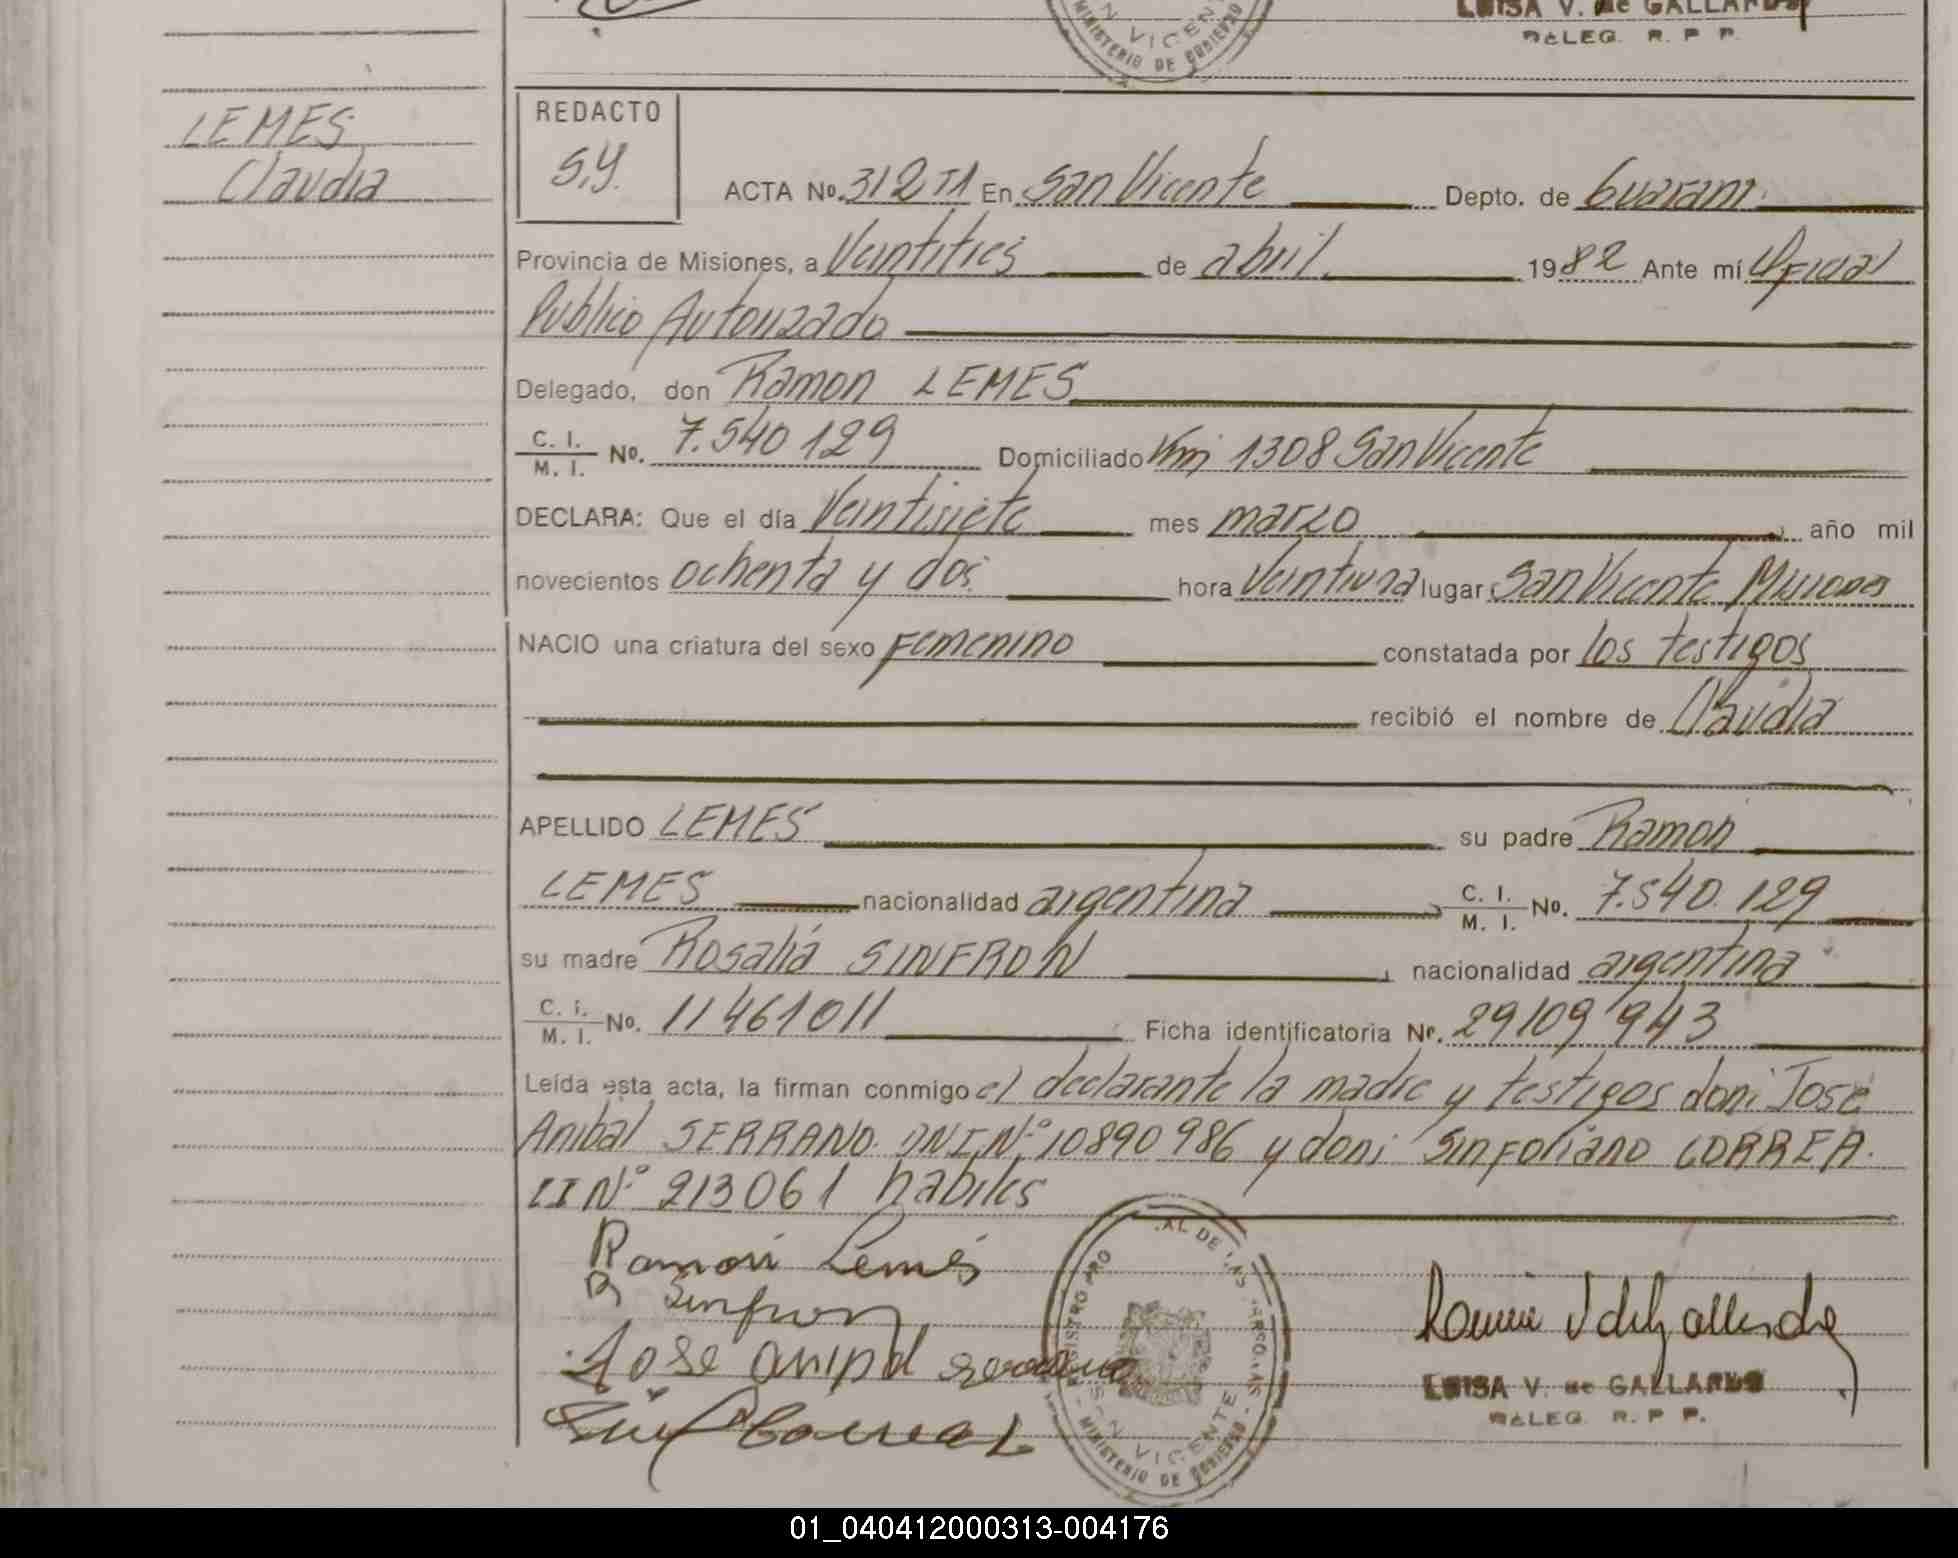 LUISA V. de GALLARDO
DELEG. R. P. P.
N VICEN
MINISTERIO DE GOBIERNO
LEMES
Claudia
REDACTO
S.Y.
ACTA No. 312 T1 En San Vicente Depto. de Guarani
Provincia de Misiones, a Veintitres de abril 1982 Ante mí Oficial
Publico Autorizado
Delegado, don Ramon LEMES
C. I. / M. I. No. 7.540 129 Domiciliado Km 1308 San Vicente
DECLARA: Que el día Veintisiete mes marzo año mil
novecientos ochenta y dos hora Veintiuna lugar San Vicente Misiones
NACIO una criatura del sexo Femenino constatada por los testigos
recibió el nombre de Claudia
APELLIDO LEMES su padre Ramon
LEMES nacionalidad argentina C. I. / M. I. No. 7.540.129
su madre Rosalia SINFRON nacionalidad argentina
C. I. / M. I. No. 11461011 Ficha identificatoria Nº. 29109943
Leída esta acta, la firman conmigo el declarante la madre y testigos don: José
Anibal SERRANO DNI.Nº 10890986 y don: Sinforiano CORREA.
CI Nº 213061 habiles
Ramon Lemes
R Sinfron
Jose anipal serrano
LUISA V. de GALLARDO
DELEG. R. P. P.
REGISTRO PRO AL DE LAS PERSONAS
SAN VICENTE
MINISTERIO DE GOBIERNO
01_040412000313-004176